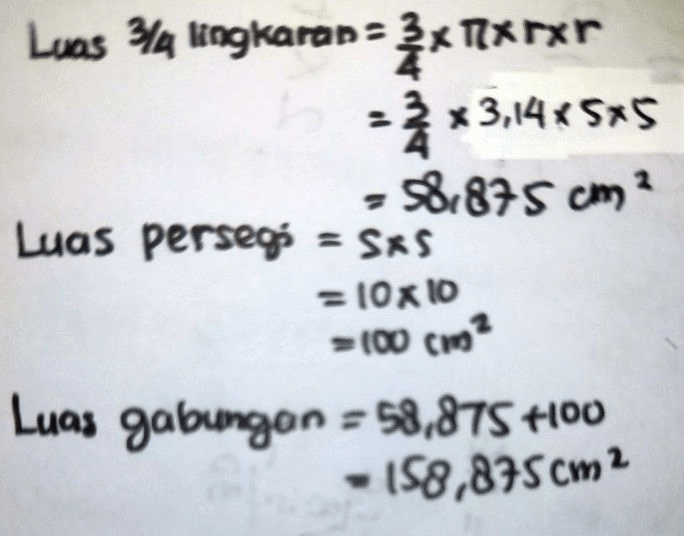 Luas 3/4 lingkaran = 3/4 x π x r x r
= 3/4 x 3,14 x 5 x 5
= 58,875 cm²
Luas persegi = s x s
= 10 x 10
= 100 cm²
Luas gabungan = 58,875 + 100
= 158,875 cm²